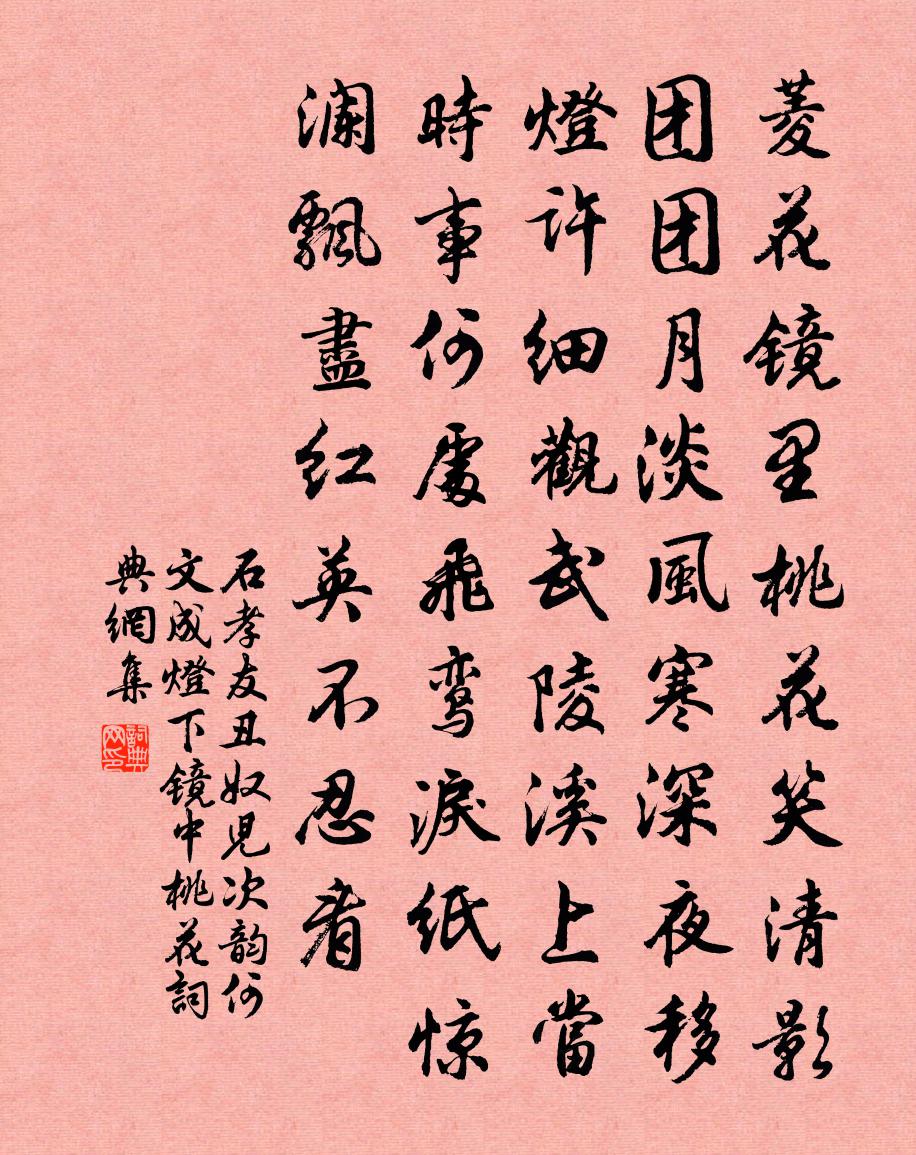 菱花镜里桃花笑清影
团团月淡風寒深夜移
燈许细觀武陵溪上當
時事何處飛鸾淚纸惊
澜飄盡红英不忍看
石孝友丑奴児次韵何
文成燈下镜中桃花詞
典網集
詞典网印